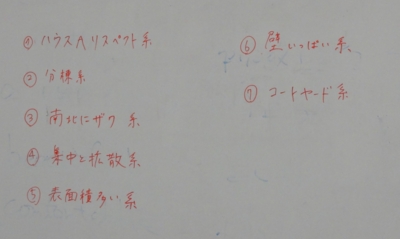 ① ハウスAリスペクト系
② 分棟系
③ 南北にザク系
④ 集中と拡散系
⑤ 表面積多い系
⑥ 壁いっぱい系
⑦ コートヤード系